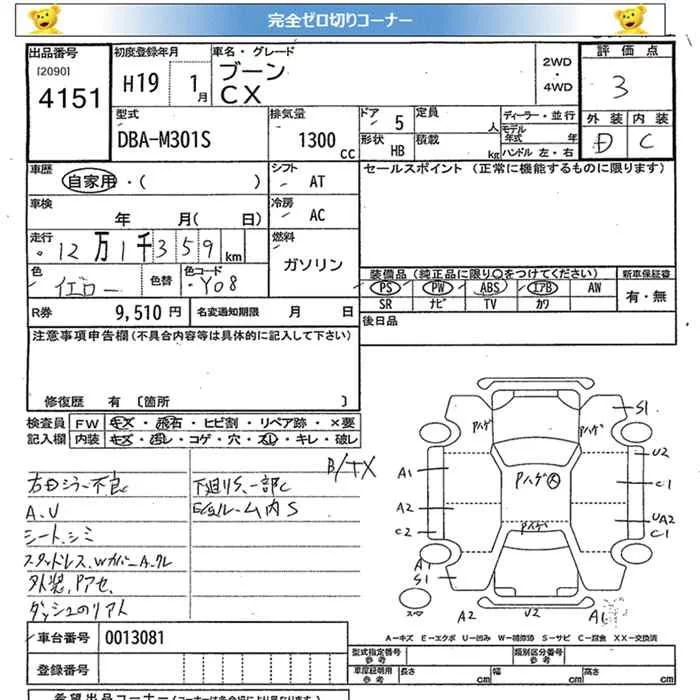 完全ゼロ切りコーナー
出品番号 初度登録年月 車名・グレード 2WD・4WD 評価点
[2090] 4151 H19 1月 ブーン CX 3
外装 内装
D C
型式 排気量 ドア 5 定員 人 ディーラー・並行
DBA-M301S 1300cc 形状 HB 積載 kg モデル年式 年
ハンドル 左・右
車歴 自家用・( ) シフト AT セールスポイント (正常に機能するものに限ります)
車検 年 月( 日) 冷房 AC
走行 12万1千359km 燃料 ガソリン
色 イエロー 色替 色コード Y08
装備品(純正品に限り○をつけてください) 新車保証書
PS PW ABS エアB AW 有・無
SR ナビ TV カワ
R券 9,510円 名変通知期限 月 日 後日品
注意事項申告欄(不具合内容等は具体的に記入して下さい)
修復歴 有 [箇所 ]
検査員記入欄 FW キズ・飛石・ヒビ割・リペア跡・×要
内装 キズ・汚レ・コゲ・穴・スレ・キレ・破レ
B/TX
右ロミラー不良 下廻りS、一部C
A.U E/gルーム内S
シート、シミ
スタッドレス、WカバーA.ワレ
外装、Pアセ、
ダッシュのリアト
Pハゲ Pハゲ S1
A1 U2
Pハゲ大 C1
A2 UA2
C2 Pハゲ C1
A1
S1
スロ A2 U2 A1
A-キズ E-エクボ U-凹み W-補修跡 S-サビ C-腐食 XX-交換済
車台番号 0013081 型式指定番号 参考 類別区分番号 参考
登録番号 車庫証明用 参考 長さ cm 幅 cm 高さ cm
希望出品コーナー